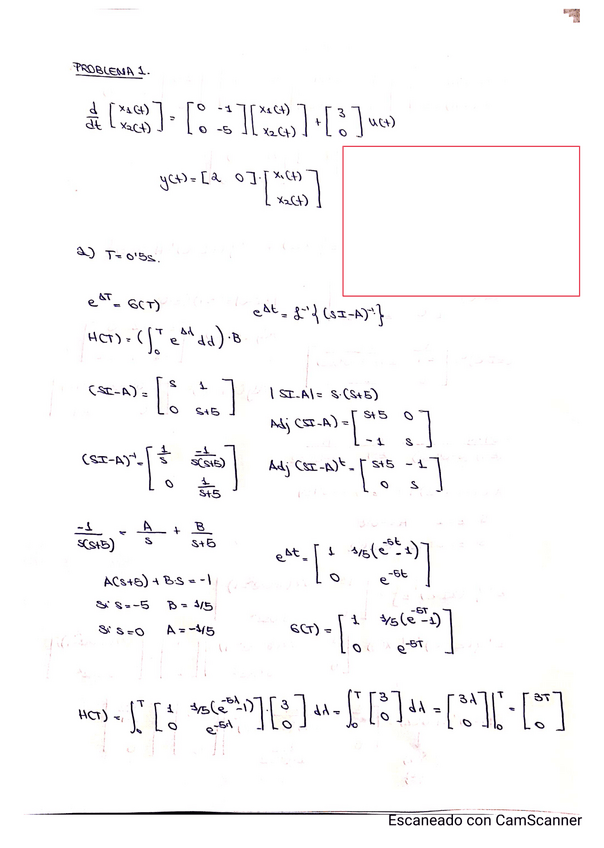 PROBLEMA 1.
d/dt [x1(t) x2(t)] = [0 -1 0 -5] [x1(t) x2(t)] + [3 0] u(t)
y(t) = [2 0] · [x1(t) x2(t)]
a) T = 0'5s.
e^AT = G(T)
e^At = ℒ^-1 { (SI-A)^-1 }
H(T) = (∫_0^T e^Aλ dλ) · B
(SI-A) = [S 1 0 S+5]
|SI-A| = S·(S+5)
Adj (SI-A) = [S+5 0 -1 S]
(SI-A)^-1 = [1/S -1/S(S+5) 0 1/S+5]
Adj (SI-A)^t = [S+5 -1 0 S]
-1/S(S+5) = A/S + B/S+5
e^At = [1 1/5(e^-5t -1) 0 e^-5t]
A(S+5) + B·S = -1
Si S=-5 B = 1/5
Si S=0 A = -1/5
G(T) = [1 1/5(e^-5T -1) 0 e^-5T]
H(T) = ∫_0^T [1 1/5(e^-5λ -1) 0 e^-5λ] [3 0] dλ = ∫_0^T [3 0] dλ = [3λ 0] |_0^T = [3T 0]
Escaneado con CamScanner